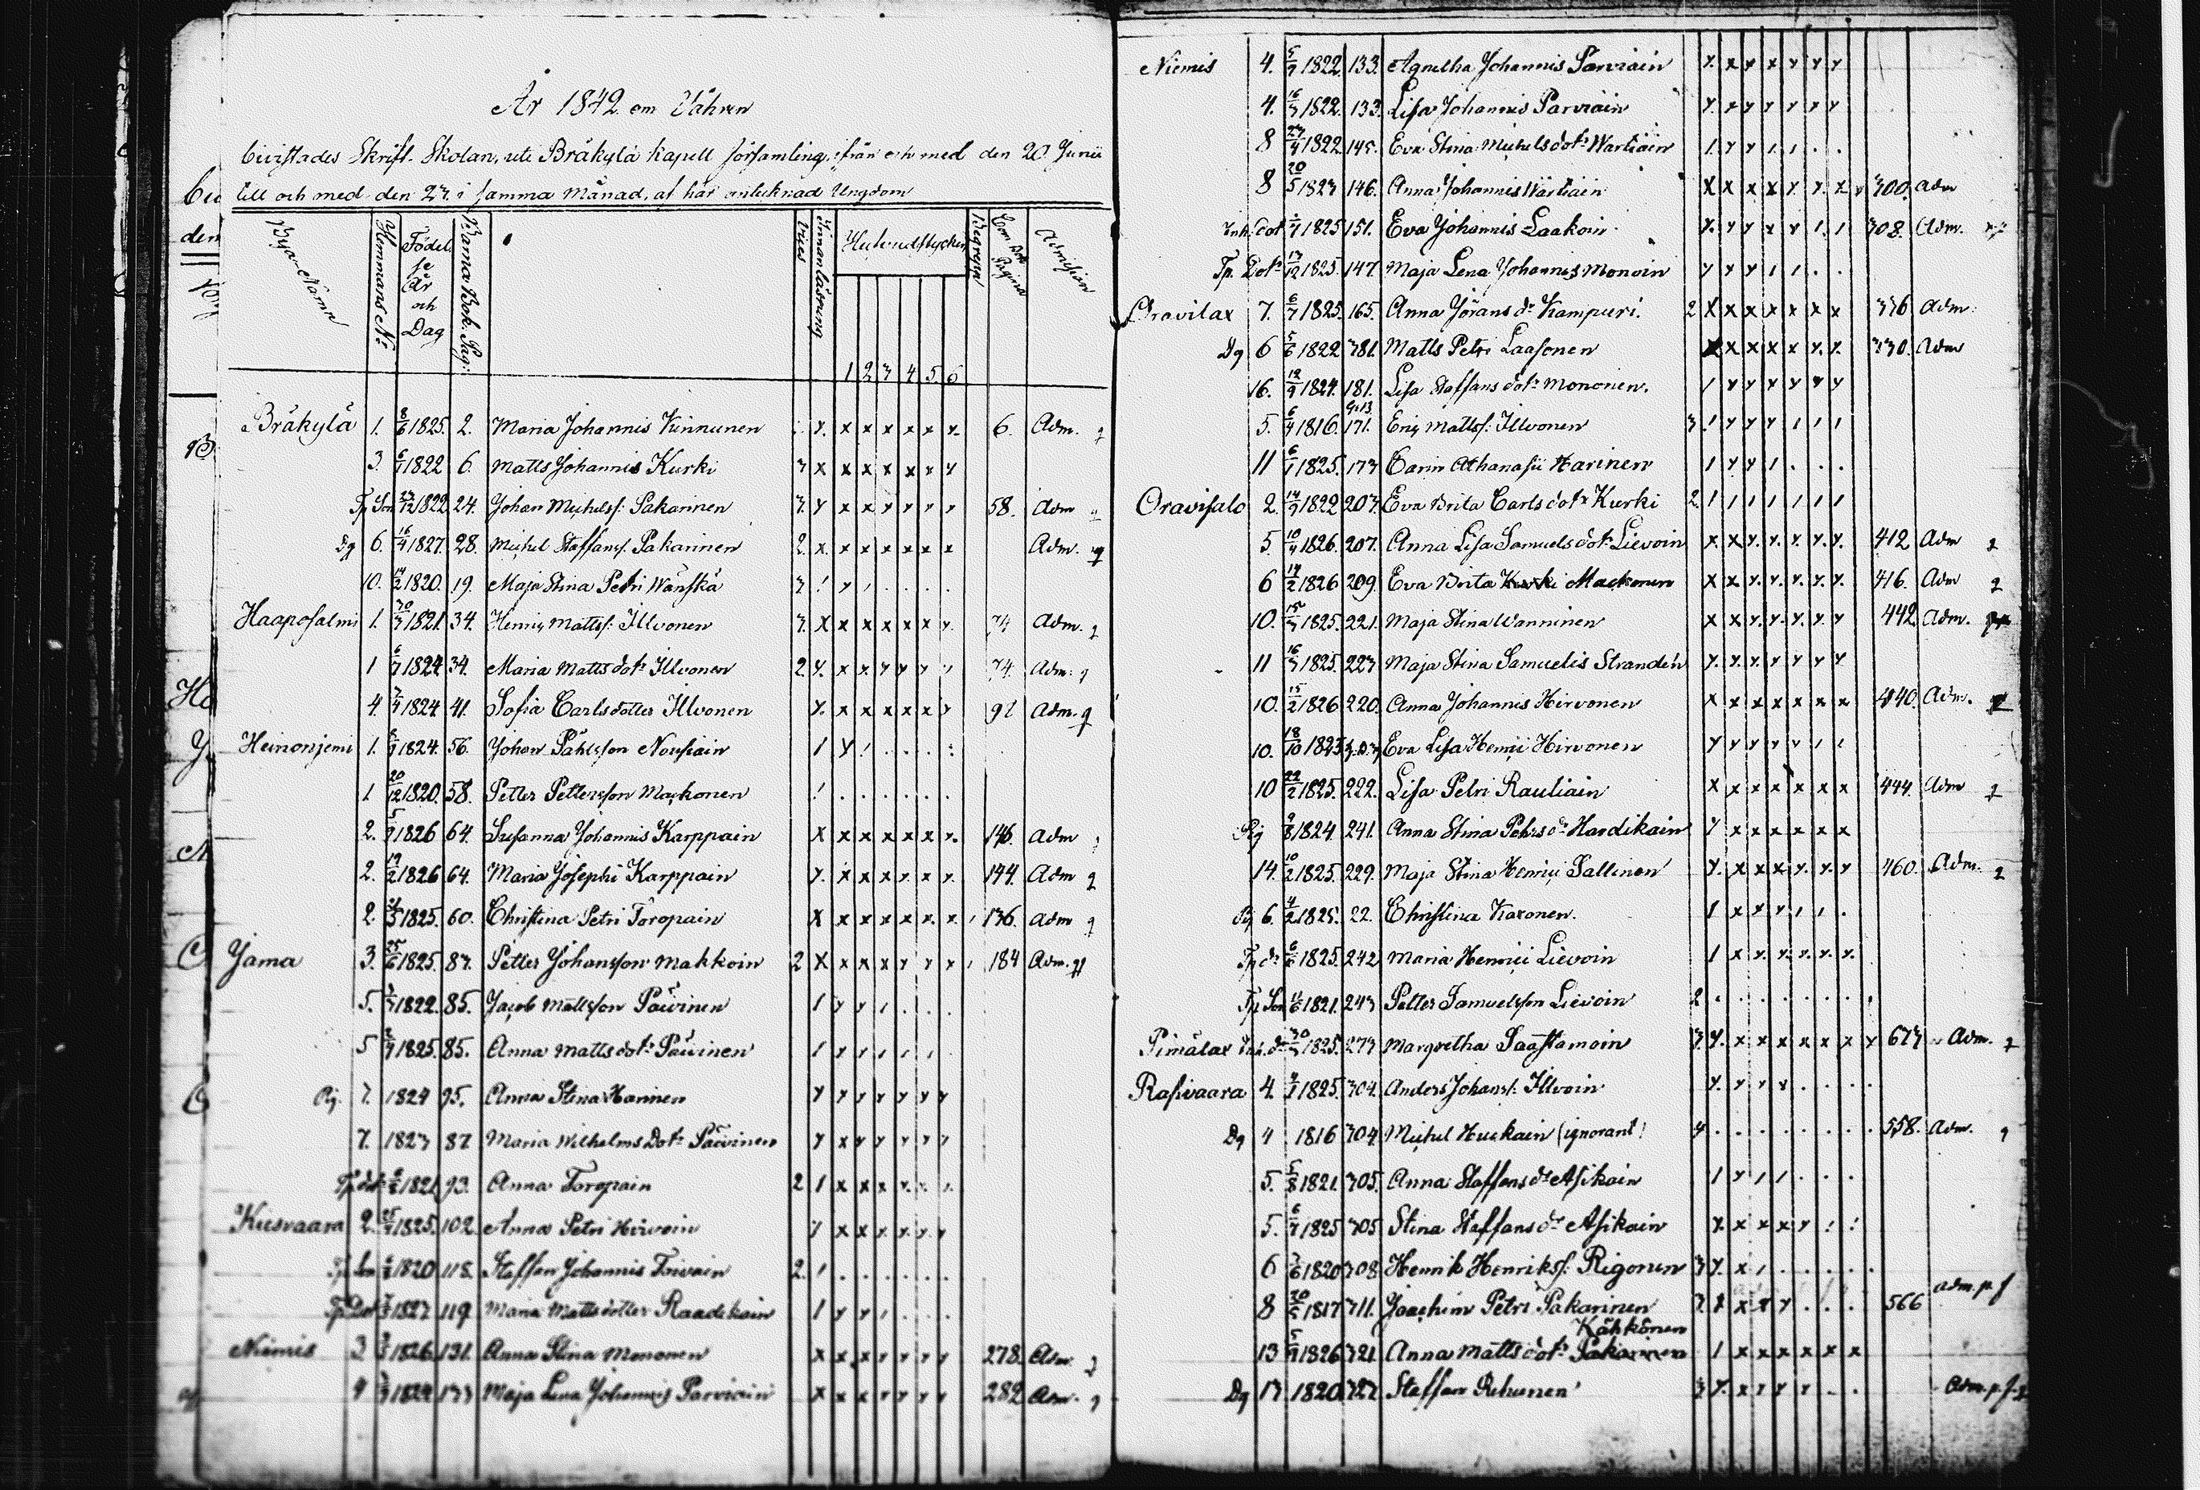 År 1842 om Våhren
bevistades Skrift-Skolan, uti Bräkylä Kapell församling, ifrån och med den 20 Junii
till och med den 27 i samma Månad, af här antecknad Ungdom
Bya-Namn Hemmans N: Födelse År och Dag Barna Bok. Pag: Innanläsning Hufvudstycken Pagina Admission
1 2 3 4 5 6
Bräkylä 1. 8/6 1825. 2. Maria Johannis Kinnunen 6. Adm.
3. 6/7 1822 6. Matts Johannis Kurki
Tp Son 1822 24. Johan Michelsf: Pakarinen 58. Adm
Dg 6. 16/4 1827. 28. Michel Staffansf. Pakarinen Adm.
10. 14/2 1820. 19. Maja Stina Petri Wänskä
Haaposalmi 1. 1821. 34. Henric Mattsf: Illvonen 74 Adm.
1 6/7 1824 34. Maria Matts dotr Illvonen 74. Adm.
4. 1824 41. Sofia Carlsdotter Illvonen 92 Adm.
Heinonjemi 1. 1824. 56. Johan Påhlsson Nousiain
1 20/12 1820. 58. Petter Pettersson Mackonen
2. 1826 64. Susanna Johannis Karppain 146. Adm
2. 19/2 1826 64. Maria Josephi Karppain 144. Adm
2. 1825. 60. Christina Petri Toropain 136. Adm
Jama 3. 25/6 1825. 87. Petter Johansson Makkoin 2 184 Adm.
5. 1822. 85. Jacob Mattsson Päivinen
5 1825. 85. Anna Mattsdotr Päivinen
7. 1824 95. Anna Stina Harinen
7. 1823 87 Maria Wilhelms Dotr Päivinen
1821 93. Anna Toropain 2
Kiesvaara 2. 25/4 1825. 102. Anna Petri Hirvoin
1820 118. Staffan Johannis 2.
1827 119. Maria Mattsdotter Raadikain
Niemis 3 1826 131. Anna Stina Mononen 278 Adm
4 1824 133 Maja Lena Johannis Parviain 282 Adm.
Niemis 4. 5/7 1822. 133. Agnetha Johannis Parviain
4. 16/7 1822. 133. Lisa Johannis Parviain
8 27/4 1822 145. Eva Stina Michelsdotr Wartiain
8 20/5 1823 146. Anna Johannis Wartiain 300. Adm
Inh. dot 1825 151. Eva Johannis Laakoin 308. Adm.
Tp. Dotr 13/12 1825. 147. Maja Lena Johannis Monoin
Oravilax 7. 6/7 1825. 165. Anna Jörans dr Kampuri. 2 376 Adm.
Dg 6 5/6 1822 381. Matts Petri Laasonen 330. Adm
16. 12/9 1824. 181. Lisa Staffans dotr Mononen.
5. 6/4 1816. 171. Eric Mattsf: Illvonen 3
11 6/1 1825. 173 Carin Athanasii Harinen
Oravisalo 2. 14/9 1822 203. Eva Brita Carls dotr Kurki 2
5. 10/4 1826. 207. Anna Lisa Samuels dotr Lievoin 412 Adm
6 14/2 1826 209. Eva Brita Mackonen 416. Adm
10. 15/3 1825. 221. Maja Stina Wanninen 442 Adm.
11 16/3 1825. 223 Maja Stina Samuelis Strandén
10. 15/2 1826 220. Anna Johannis Hirvonen 440. Adm.
10. 18/10 1823 Eva Lisa Henrici Hirvonen
10 22/2 1825. 222. Lisa Petri Rauliain 444 Adm
1824 241. Anna Stina Pehrs dr Hardikain
14. 10/2 1825. 229. Maja Stina Henrici Sallinen 460. Adm.
6. 4/2 1825. 22. Christina Kaxonen.
Tp dr 1825. 242 Maria Henrici Lievoin
Tp Son 1821. 243 Petter Samuelsson Lievoin 2
Pimälax Inh. dr 1825. 273 Margretha Saastamoin 673 Adm.
Rasivaara 4. 1825. 304. Anders Johansf. Illvoin
Dg 4 1816 304. Michel Huckain (ignorant) 4 558. Adm.
5. 5/8 1821. 305. Anna Staffans dr Asikain
5. 6/7 1825 305 Stina Staffans dr Asikain
6 1820 308 Henrik Henriksf: Rigonen
8 1817 311. Joachim Petri Pakarinen 566 Adm. p. f
Kähkönen
13 5/9 1826 321. Anna Matts dotr Pakarinen
Dg 17. 1820 327. Staffan Rihunen Adm. p. f.